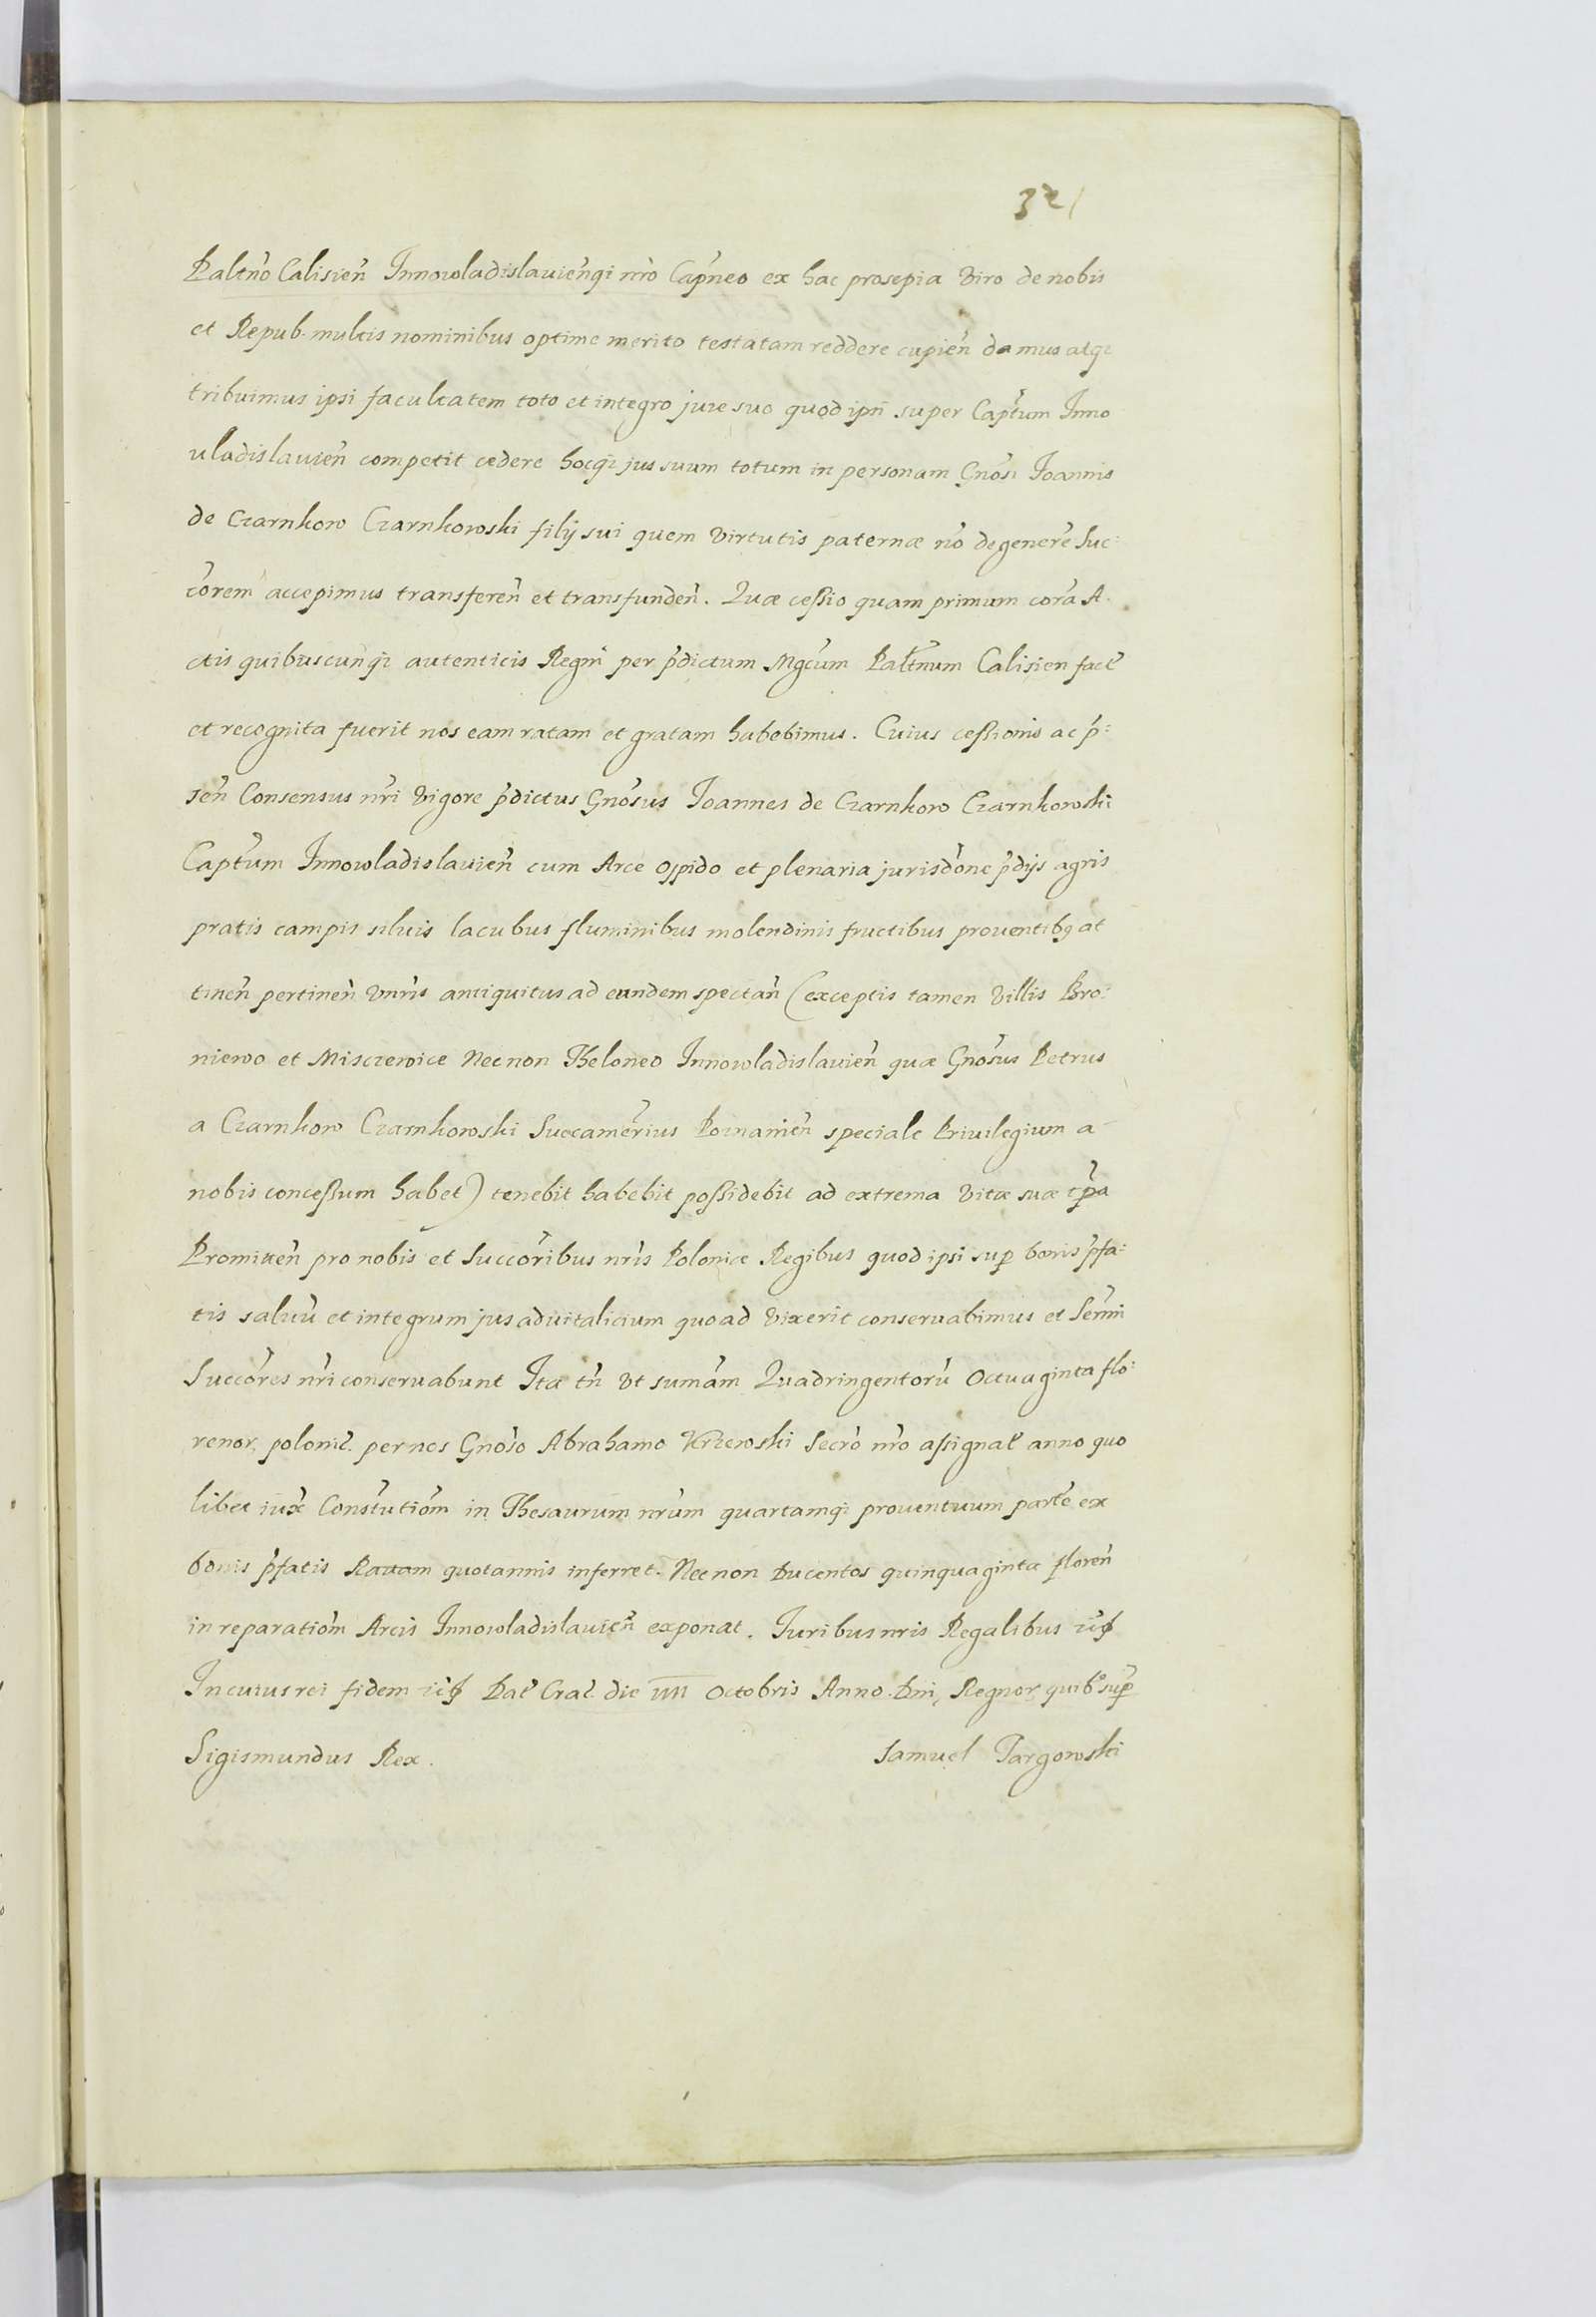 321
Paltno Calisien̄ Innowladislauiengi nr̄o Capneo ex hac prosepia Viro de nobis
et Repub. multis nominibus optime merito testatam reddere cupien̄ damus atqꝫ
tribuimus ipsi facultatem toto et integro jure suo quod ipn̄ super Captum Inno
uladislauien̄ competit cedere hocqꝫ jus suum totum in personam Gnosi Joannis
de Czarnkow Czarnkowski filij sui quem Virtutis paternæ nō degenere Suc:
corem accepimus transferen̄ et transfunden̄. Quæ cessio quam primum corā A
ctis quibuscunqꝫ autenticis Regni per p̄dictum Mgcum Paltnum Calisien fact
et recognita fuerit nos eam ratam et gratam habebimus. Cuius cessionis ac p̄:
sen̄ Consensus nr̄i Vigore p̄dictus Gnosus Joannes de Czarnkow Czarnkowski
Captum Innowladislauien̄ cum Arce oppido et plenaria jurisdōne p̄dijs agris
pratis campis siluis lacubus fluminibus molendinis fructibus prouentibꝫ at
tinen̄ pertinen̄ Vnīs antiquitus ad eundem spectan̄ (exceptis tamen Villis Bro:
niewo et Misczewice Necnon Theloneo Innowladislauien̄ quæ Gnosus Petrus
a Czarnkow Czarnkowski Succamerius Poznanien̄ speciale Priuilegium a
nobis concessum habet) tenebit habebit possidebit ad extrema Vitæ suæ tp̄a
Promitten̄ pro nobis et Succoribus nr̄is Poloniæ Regibus quod ipsi sup̱ bonis p̄fa:
tis saluū et integrum jus aduitalicium quoad Vixerit conseruabimus et Sernn̄i
Succores nr̄i conseruabunt Ita tn̄ Vt sumām Quadringentorū Octuaginta flo:
renor polonic̄. pernos Gnoso Abrahamo Krzewski Secro nr̄o assignat anno quo
libet iux̄ Constutiōm in Thesaurum nr̄um quartamqꝫ prouentuum parte ex
bonis p̄fatis Rauam quotannis inferret. Necnon Ducentos quinquaginta floren̄
in reparatiōm Arcis Innowladislauien̄ exponat. Juribus nris Regalibus etc
In cuius rei fidem etc Dat Crac̄. die IIII Octobris Anno Dni, Regnor quibꝰ sup̱
Sigismundus Rex. Samuel Targowski